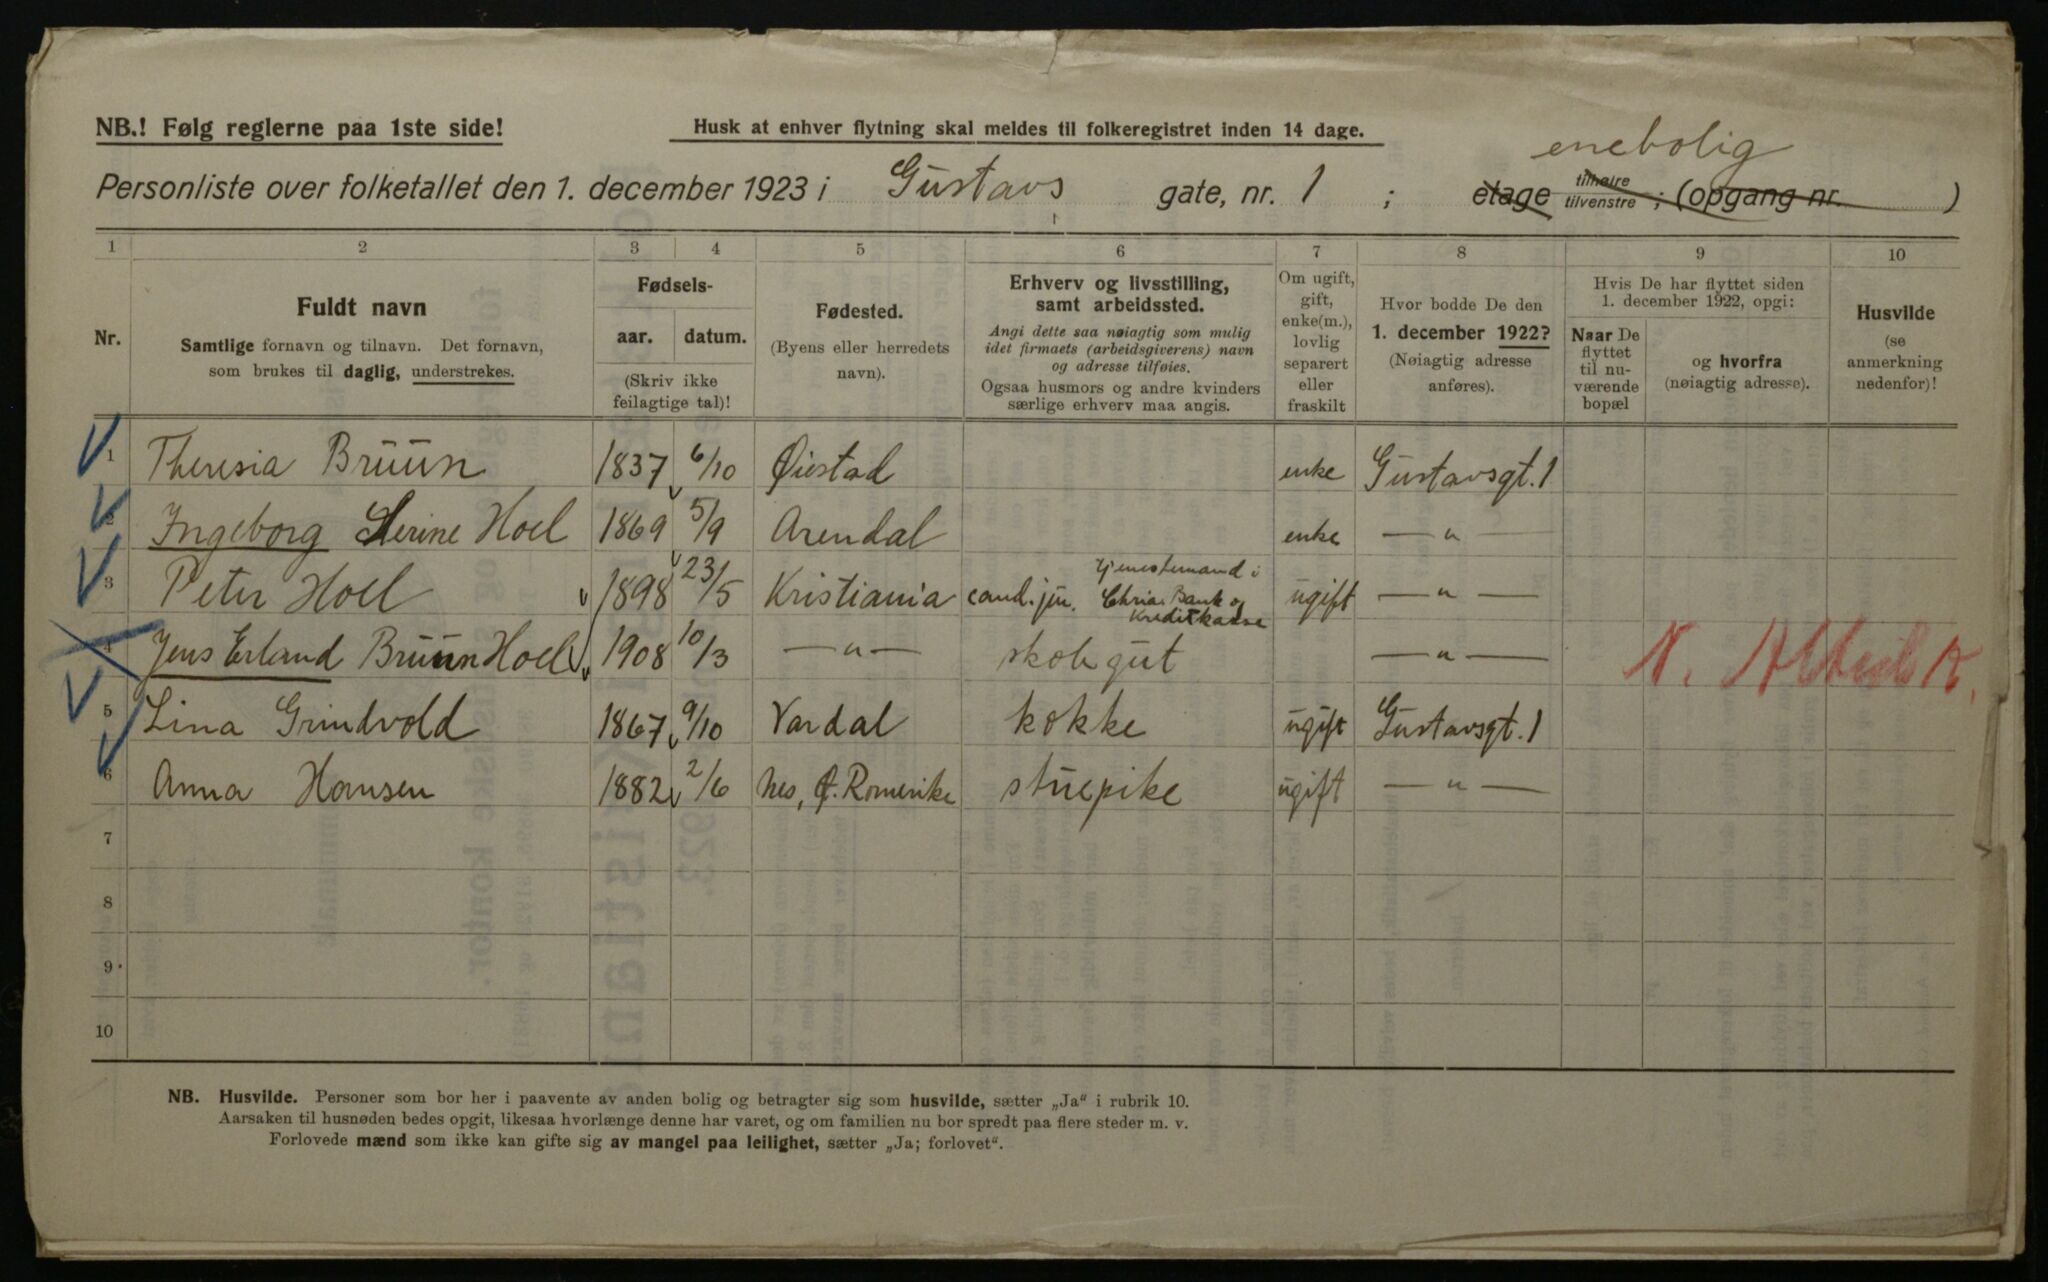 NB.! Følg reglerne paa 1ste side!
Husk at enhver flytning skal meldes til folkeregistret inden 14 dage.
enebolig
Personliste over folketallet den 1. december 1923 i Gustavs gate, nr. 1 ; etage tilhøire tilvenstre ; (opgang nr. )
1 2 3 4 5 6 7 8 9 10
Nr.
Fuldt navn
Samtlige fornavn og tilnavn. Det fornavn,
som brukes til daglig, understrekes.
Fødsels-
aar. datum.
(Skriv ikke
feilagtige tal)!
Fødested.
(Byens eller herredets
navn).
Erhverv og livsstilling,
samt arbeidssted.
Angi dette saa nøiagtig som mulig
idet firmaets (arbeidsgiverens) navn
og adresse tilføies.
Ogsaa husmors og andre kvinders
særlige erhverv maa angis.
Om ugift,
gift,
enke(m.),
lovlig
separert
eller
fraskilt
Hvor bodde De den
1. december 1922?
(Nøiagtig adresse
anføres).
Hvis De har flyttet siden
1. december 1922, opgi:
Naar De
flyttet
til nu-
værende
bopæl
og hvorfra
(nøiagtig adresse).
Husvilde
(se
anmerkning
nedenfor)!
1 Theresia Bruun 1837 6/10 Øiestad enke Gustavsgt. 1
2 Ingeborg Serine Hoel 1869 5/9 Arendal enke — " —
3 Peter Hoel 1898 23/5 Kristiania cand. jur. Tjenestemand i Chria. Bank og Kreditkasse ugift — " —
4 Jens Erland Bruun Hoel 1908 10/3 — " — skolegut — " — N.
5 Lina Grindvold 1867 9/10 Vardal kokke ugift Gustavsgt. 1
6 Anna Hansen 1882 2/6 Nes, Ø. Romerike stuepike ugift — " —
7
8
9
10
NB. Husvilde. Personer som bor her i paavente av anden bolig og betragter sig som husvilde, sætter „Ja" i rubrik 10.
Aarsaken til husnøden bedes opgit, likesaa hvorlænge denne har varet, og om familien nu bor spredt paa flere steder m. v.
Forlovede mænd som ikke kan gifte sig av mangel paa leilighet, sætter „Ja; forlovet".